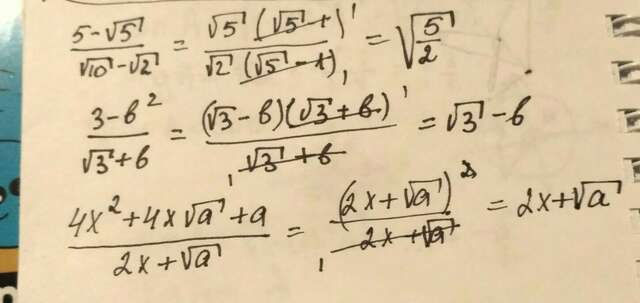 (5-√5)/(√10-√2) = (√5(√5-1))/(√2(√5-1)) = √(5/2)
(3-b²)/(√3+b) = ((√3-b)(√3+b))/(√3+b) = √3-b
(4x²+4x√a+a)/(2x+√a) = (2x+√a)²/(2x+√a) = 2x+√a